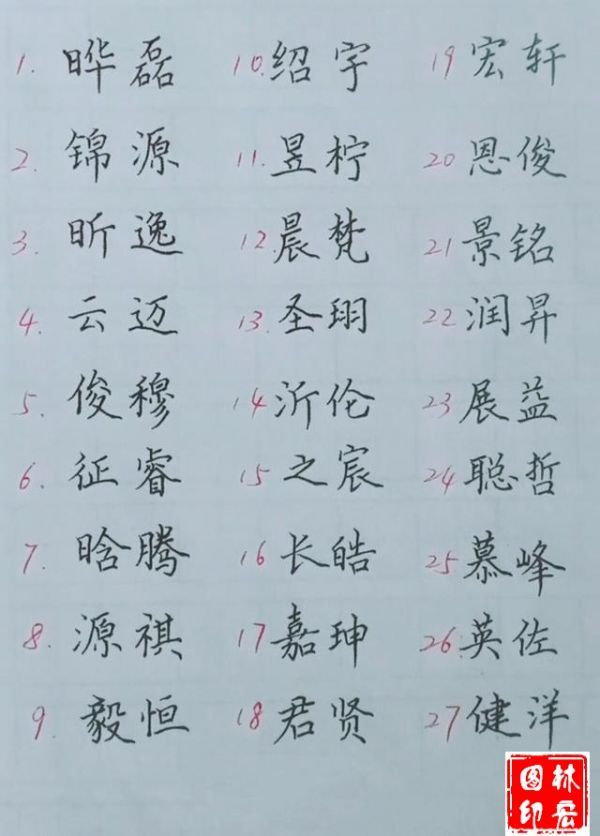 1. 晔磊
2. 锦源
3. 昕逸
4. 云迈
5. 俊穆
6. 征睿
7. 晗腾
8. 源祺
9. 毅恒
10. 绍宇
11. 昱柠
12 晨梵
13. 圣珝
14 沂伦
15 之宸
16 长皓
17 嘉珅
18 君贤
19 宏轩
20 恩俊
21 景铭
22 润昇
23 展益
24 聪哲
25 慕峰
26. 英佐
27 健洋
林岳
图印